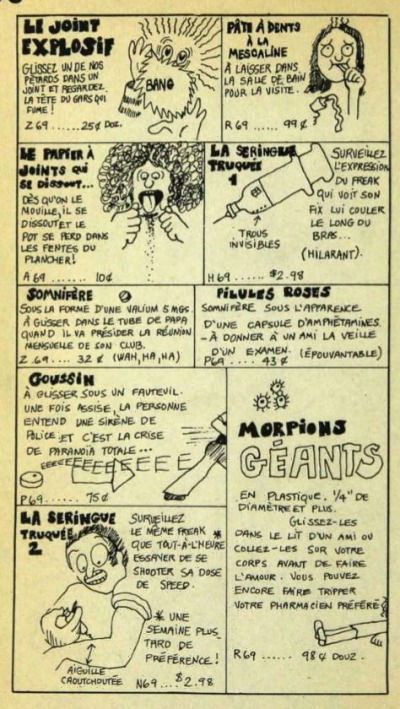 LE JOINT
EXPLOSIF
GLISSEZ UN DE NOS
PÉTARDS DANS UN
JOINT ET REGARDEZ
LA TÊTE DU GARS QUI
FUME !
Z 69 ...... 25¢ DOZ.
BANG
PÂTE À DENTS
À LA
MESCALINE
À LAISSER DANS
LA SALLE DE BAIN
POUR LA VISITE.
R 69 ...... 99¢
LE PAPIER À
JOINTS QUI
SE DISSOUT...
DÈS QU'ON LE
MOUILLE, IL SE
DISSOUT ET LE
POT SE PERD DANS
LES FENTES DU
PLANCHER!
A 69 ...... 10¢
LA SERINGUE
TRUQUÉE
1
SURVEILLEZ
L'EXPRESSION
DU FREAK
QUI VOIT SON
FIX LUI COULER
LE LONG DU
BRAS...
(HILARANT).
TROUS
INVISIBLES
H 69 ...... $2.98
SOMNIFÈRE
SOUS LA FORME D'UNE VALIUM 5 MGS.
À GLISSER DANS LE TUBE DE PAPA
QUAND IL VA PRÉSIDER LA RÉUNION
MENSUELLE DE SON CLUB.
Z .69 .... 32 ¢ (WAH, HA, HA)
PILULES ROSES
SOMNIFÈRE SOUS L'APPARENCE
D'UNE CAPSULE D'AMPHÉTAMINES.
-À DONNER À UN AMI LA VEILLE
D'UN EXAMEN. (ÉPOUVANTABLE)
P69 .... 43 ¢
GOUSSIN
À GLISSER SOUS UN FAUTEUIL.
UNE FOIS ASSISE, LA PERSONNE
ENTEND UNE SIRÈNE DE
POLICE ET C'EST LA CRISE
DE PARANOÏA TOTALE...
EEEEEEEEEEEE
P69 ...... 75¢
MORPIONS
GÉANTS
EN PLASTIQUE. 1/4" DE
DIAMÈTRE ET PLUS.
GLISSEZ-LES
DANS LE LIT D'UN AMI OU
COLLEZ-LES SUR VOTRE
CORPS AVANT DE FAIRE
L'AMOUR. VOUS POUVEZ
ENCORE FAIRE TRIPPER
VOTRE PHARMACIEN PRÉFÉRÉ
R69 ...... 98¢ DOUZ.
LA SERINGUE
TRUQUÉE
2
SURVEILLEZ
LE MÊME FREAK *
QUE TOUT-À-L'HEURE
ESSAYER DE SE
SHOOTER SA DOSE
DE SPEED.
* UNE
SEMAINE PLUS
TARD DE
PRÉFÉRENCE!
AIGUILLE
CAOUTCHOUTÉE
N69 .... $2.98